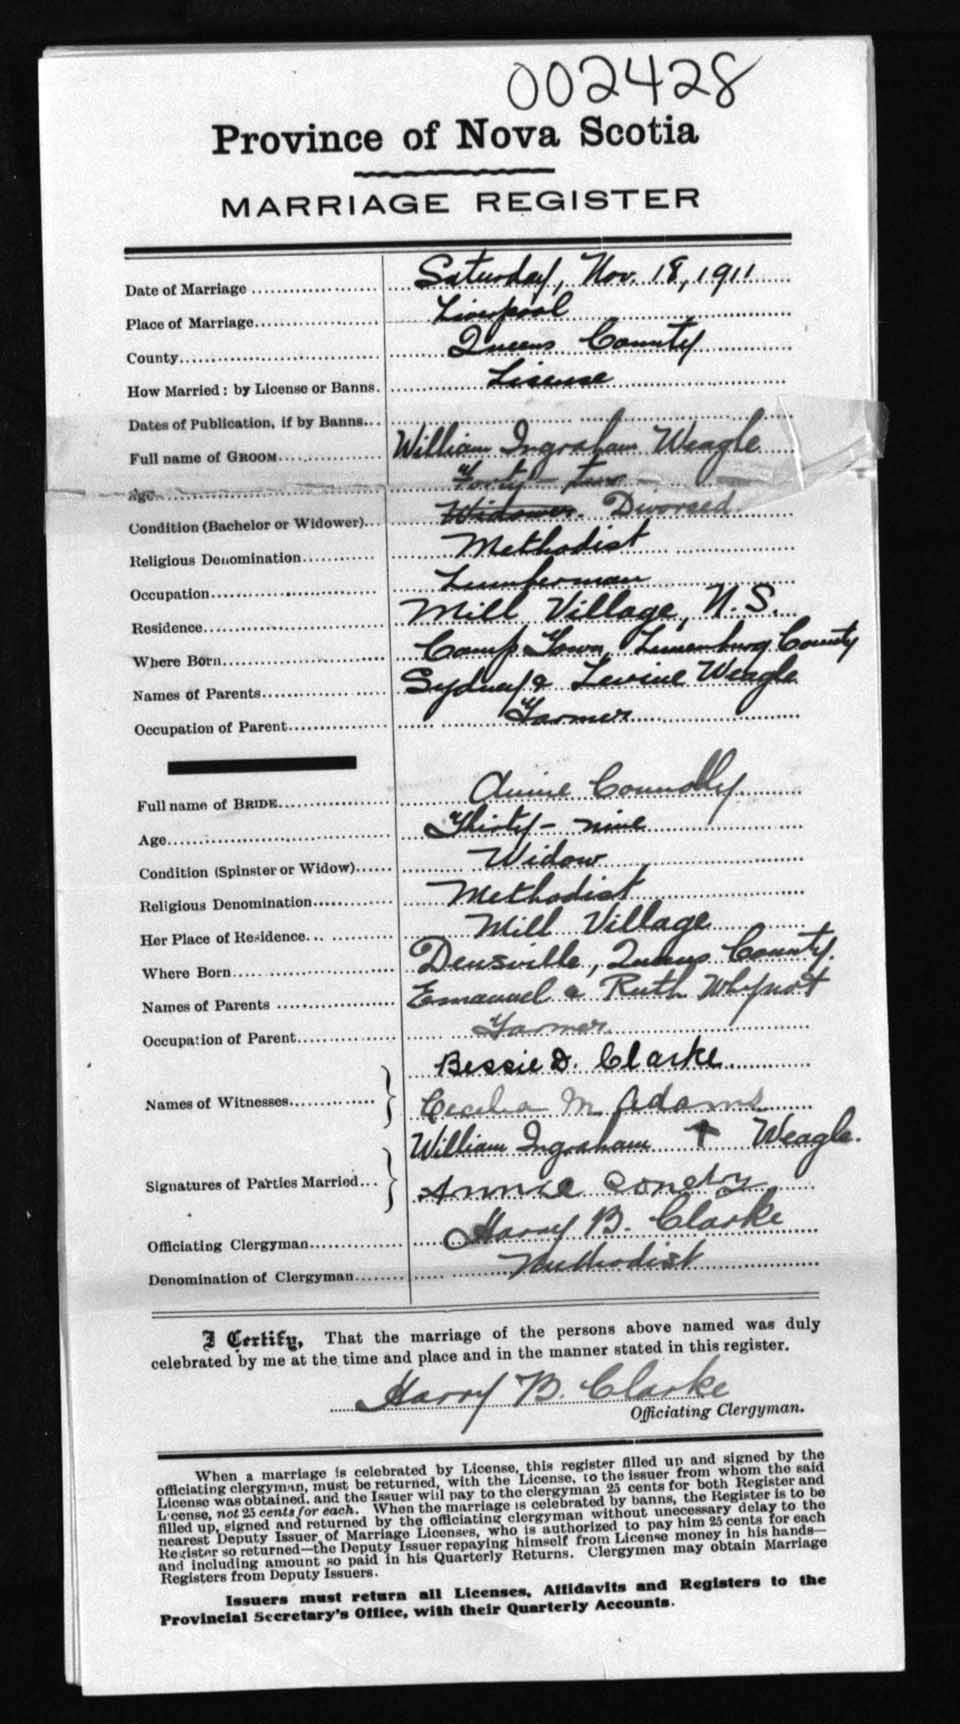 002428
Province of Nova Scotia
MARRIAGE REGISTER
Date of Marriage Saturday, Nov. 18, 1911
Place of Marriage Liverpool
County Queens County
How Married: by License or Banns. Lisense
Dates of Publication, if by Banns
Full name of GROOM William Ingraham Weagle
Age Forty-two
Condition (Bachelor or Widower) Widower. Divorsed
Religious Denomination Methodist
Occupation Lumberman
Residence Mill Village, N.S.
Where Born Camp Town, Lunenburg County
Names of Parents Sydney & Levine Weagle
Occupation of Parent Farmer
Full name of BRIDE Annie Connolly
Age Thirty-nine
Condition (Spinster or Widow) Widow
Religious Denomination Methodist
Her Place of Residence Mill Village
Where Born Devsville, Queens County.
Names of Parents Emanuel & Ruth Whynot
Occupation of Parent Farmer
Names of Witnesses Bessie D. Clarke
Cecelia M Adams
Signatures of Parties Married William Ingraham + Weagle.
Annie
Officiating Clergyman Harry B. Clarke
Denomination of Clergyman Methodist
I Certify, That the marriage of the persons above named was duly
celebrated by me at the time and place and in the manner stated in this register.
Harry B. Clarke
Officiating Clergyman.
When a marriage is celebrated by License, this register filled up and signed by the
officiating clergyman, must be returned, with the License, to the issuer from whom the said
License was obtained, and the Issuer will pay to the clergyman 25 cents for both Register and
License, not 25 cents for each. When the marriage is celebrated by banns, the Register is to be
filled up, signed and returned by the officiating clergyman without unnecessary delay to the
nearest Deputy Issuer of Marriage Licenses, who is authorized to pay him 25 cents for each
Register so returned—the Deputy Issuer repaying himself from License money in his hands—
and including amount so paid in his Quarterly Returns. Clergymen may obtain Marriage
Registers from Deputy Issuers.
Issuers must return all Licenses, Affidavits and Registers to the
Provincial Secretary's Office, with their Quarterly Accounts.